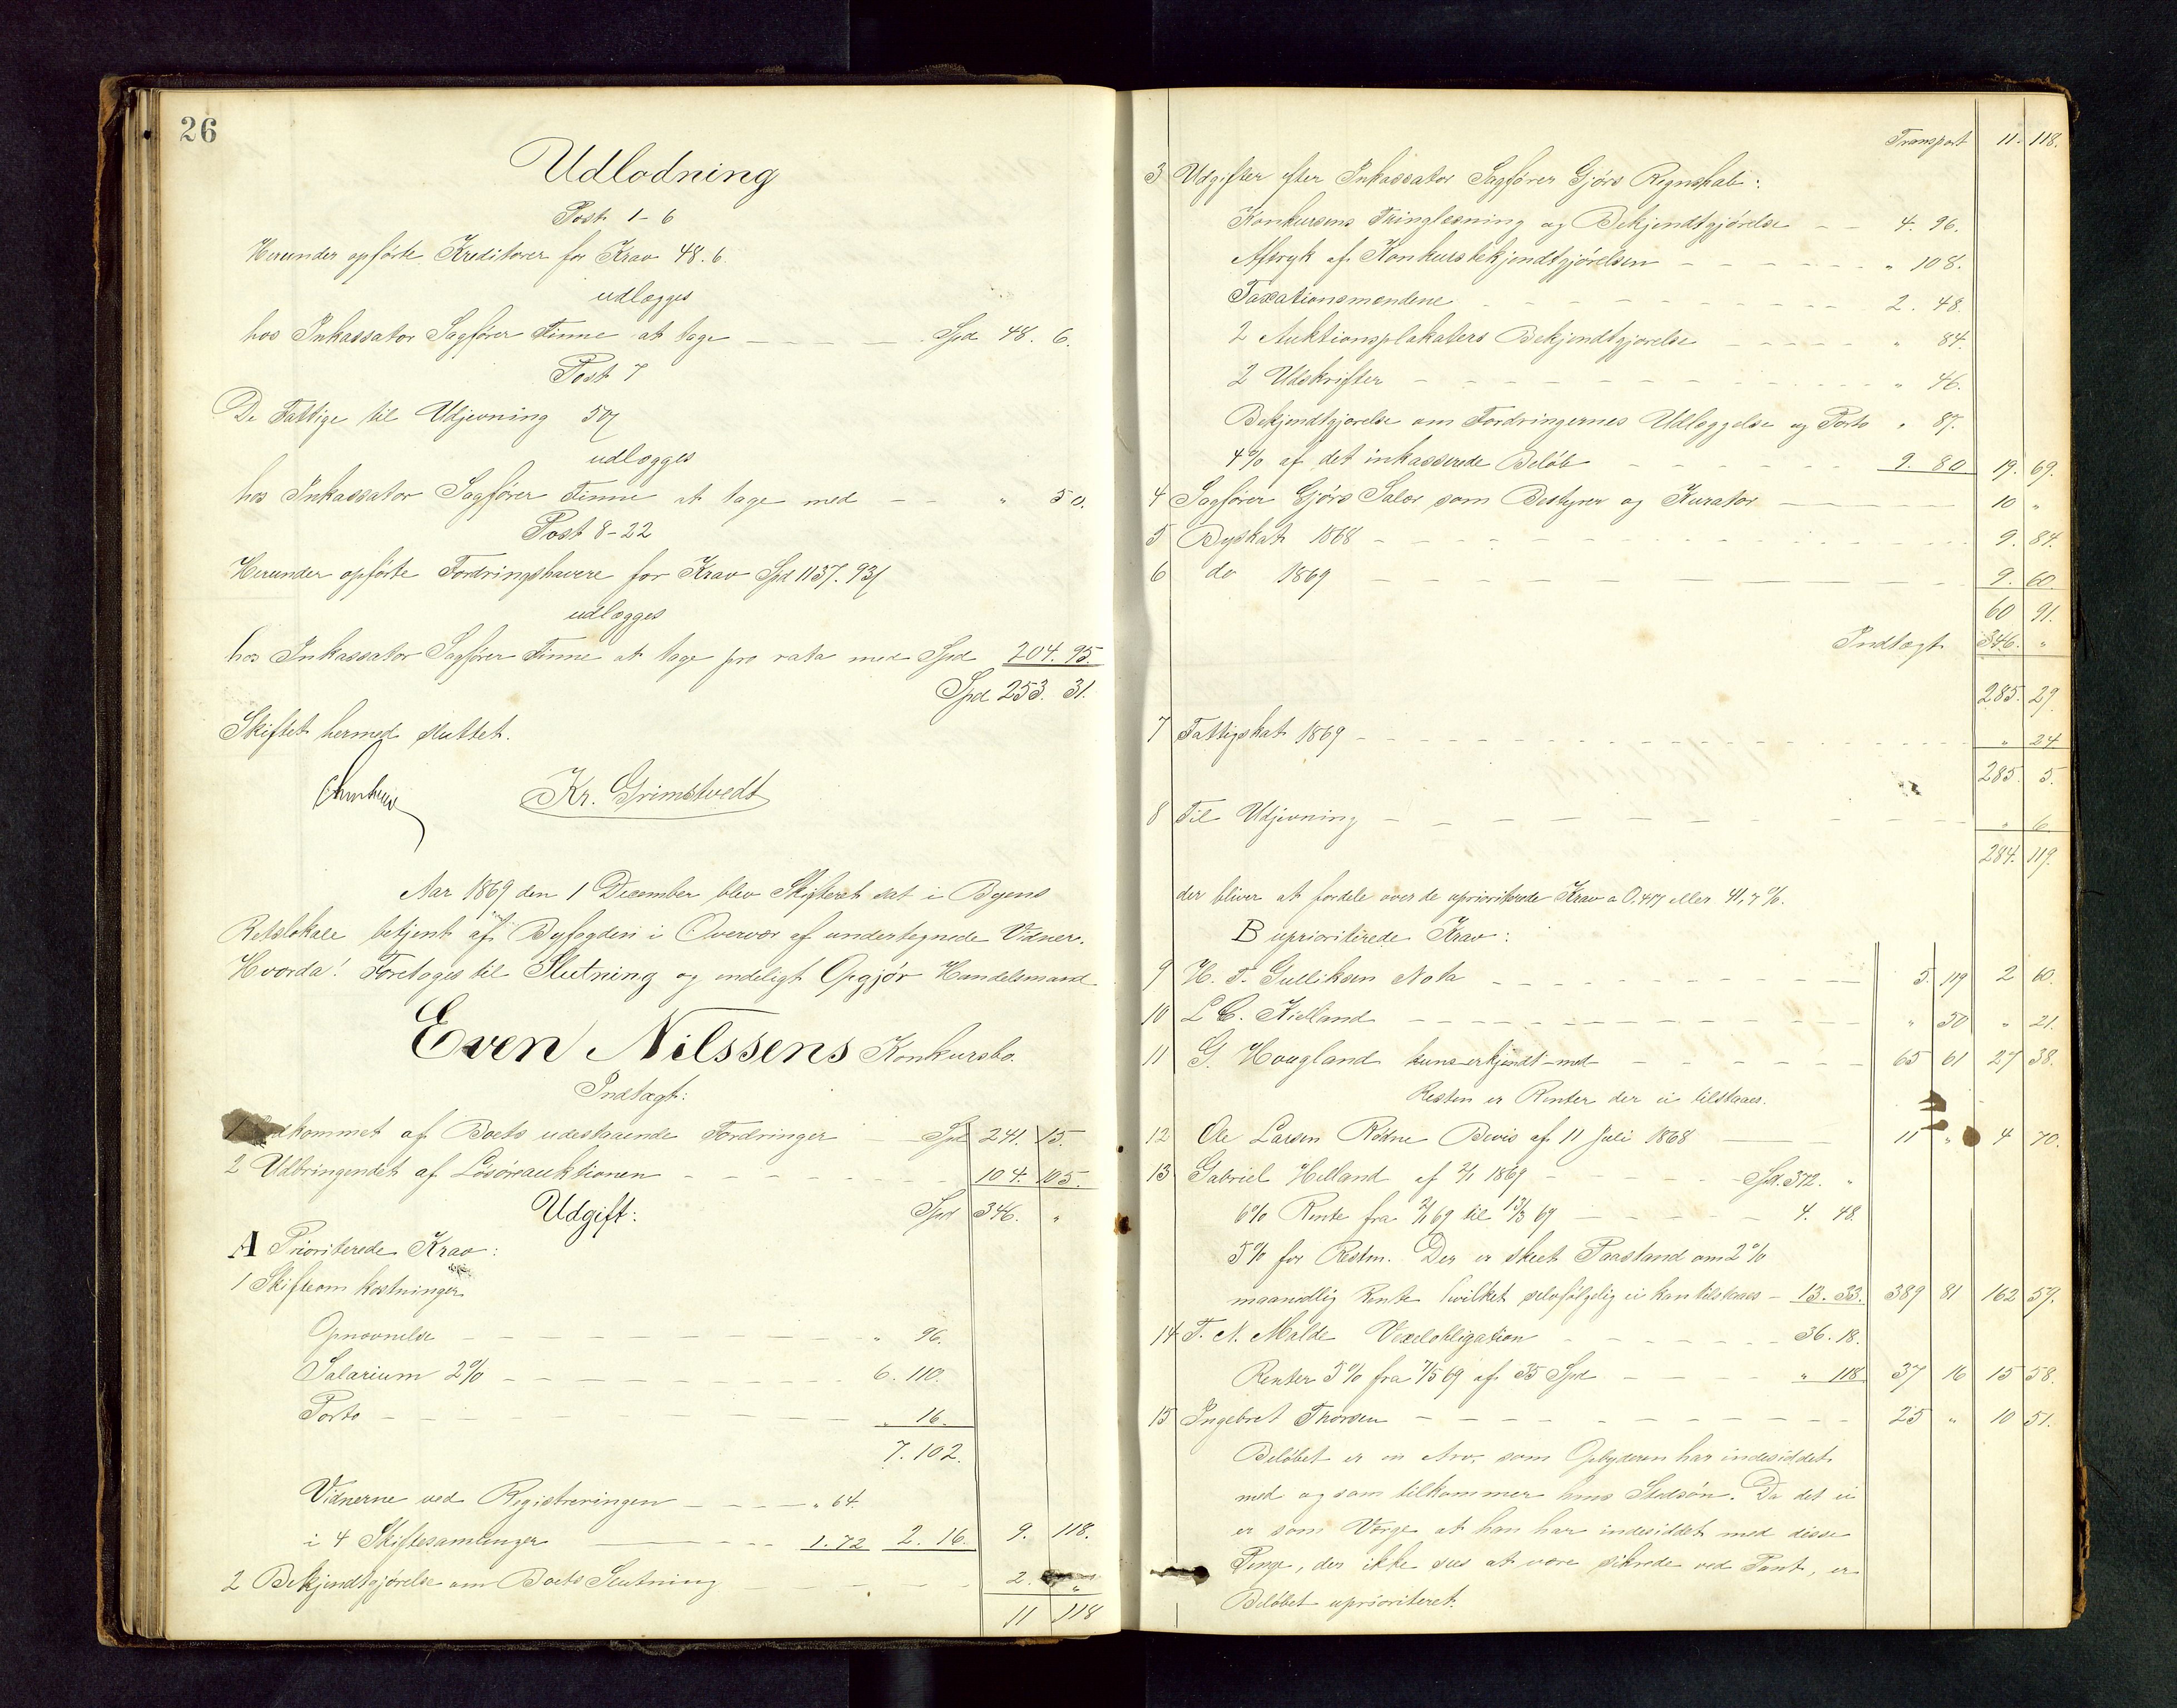 26
Udlodning
Post 1-6
Herunder opførte Kreditorer for Krav 48. 6.
udlægges
hos Inkassator Sagfører Finne at tage — — — — Spd 48. 6.
Post 7
De Fattige til Udjevning 50
udlægges
hos Inkassator Sagfører Finne at tage med — — " 50.
Post 8-22
Herunder opførte Fordringshavere for Krav Spd 1137. 93
udlægges
hos Inkassator Sagfører Finne at tage pro rata med Spd 204. 95.
Spd 253. 31.
Skiftet hermed sluttet.
Kr. Grimstvedt
Aar 1869 den 1 December blev Skifteret sat i Byens
Retslokale betjent af Byfogden i Overvær af undertegnede Vidner.
Hvorda! Foretoges til Slutning og endeligt Opgjør Handelsmand
Even Nilssens Konkursbo.
Indtægt:
1 Indkommet af Boets udestaaende Fordringer — Spd 241. 15.
2 Udbringendet af Løsøreauktionen — — — 104. 105.
Udgift: Spd 346. "
A Prioriterede Krav:
1 Skifteomkostninger
Opnævnelse — — — " 96.
Salarium 2% — — — 6. 110.
Porto — — — " 16.
7. 102.
Vidnerne ved Registreringen — — — " 64.
i 4 Skiftesamlinger — — — 1. 72 2. 16. 9. 118.
2 Bekjendtgjørelse om Boets Slutning — — — 2. "
11 118
Transport 11. 118.
3 Udgifter efter Inkassator Sagfører Gjørs Regnskab:
Konkursens Thinglesning og Bekjendtgjørelse — — 4. 96.
Aftryk af Konkursbekjendtgjørelsen — — — " 108.
Taxationsmændene — — — 2. 48.
2 Auktionsplakaters Bekjendtgjørelse — — — " 84.
2 Udskrifter — — — " 46.
Bekjendtgjørelse om Fordringernes Udlæggelse og Porto " 87.
4% af det inkasserede Beløb — — — 9. 80 19. 69.
4 Sagfører Gjørs Salær som Bestyrer og Kurator — — — 10 "
5 Byskat 1868 — — — 9. 84.
6 do 1869 — — — 9. 60.
60 91.
Indtægt 346. "
285. 29.
7 Fattigskat 1869 — — — " 24
285. 5.
8 Til Udjevning — — — " 6
284. 119.
der bliver at fordele over de uprioriterede Krav a 0,417 eller 41,7 %.
B uprioriterede Krav:
9 H. T. Gulliksen Nota — — — 5. 119 2 60.
10 L C. Kielland — — — " 50 " 21.
11 G. Hougland kun erkjendt med — — — 65 61 27 38.
Resten er Renter der ei tilstaaes.
12 Ole Larsen Rødne Bevis af 11 Juli 1868 — — — 11 " 4 70.
13 Gabriel Helland af 2/1 1869 — — — Spd. 372. "
6% Rente fra 2/1 69 til 13/3 69 — — — 4. 48.
5% for Restn. Der er skeet Paastand om 2%
maanedlig Rente hvilket selvfølgelig ei kan tilstaaes — 13. 33. 389 81 162 59.
14 T. N. Malde Vexelobligation — — — 36. 18.
Renter 5% fra 7/5 69 af 35 Spd — — — " 118 37 16 15 58.
15 Ingebret Thorsen — — — 25 " 10 51.
Beløbet er en Arv, som Opbyderen har indesiddet
med og som tilkommer hans Stedsøn. Da det ei
er som Værge at han har indesiddet med disse
Penge, der ikke sees at være sikrede ved Pant, er
Beløbet uprioriteret.